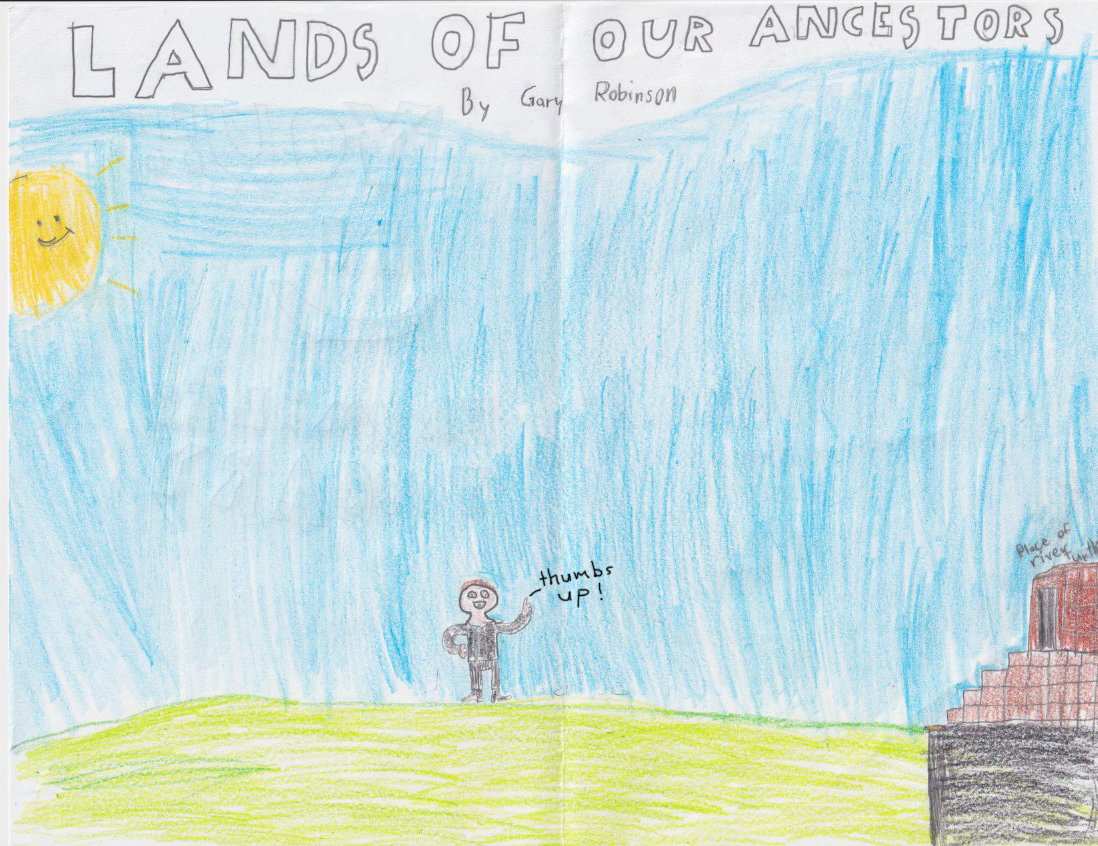 LANDS OF OUR ANCESTORS
By Gary Robinson
thumbs
up!
Place of
river